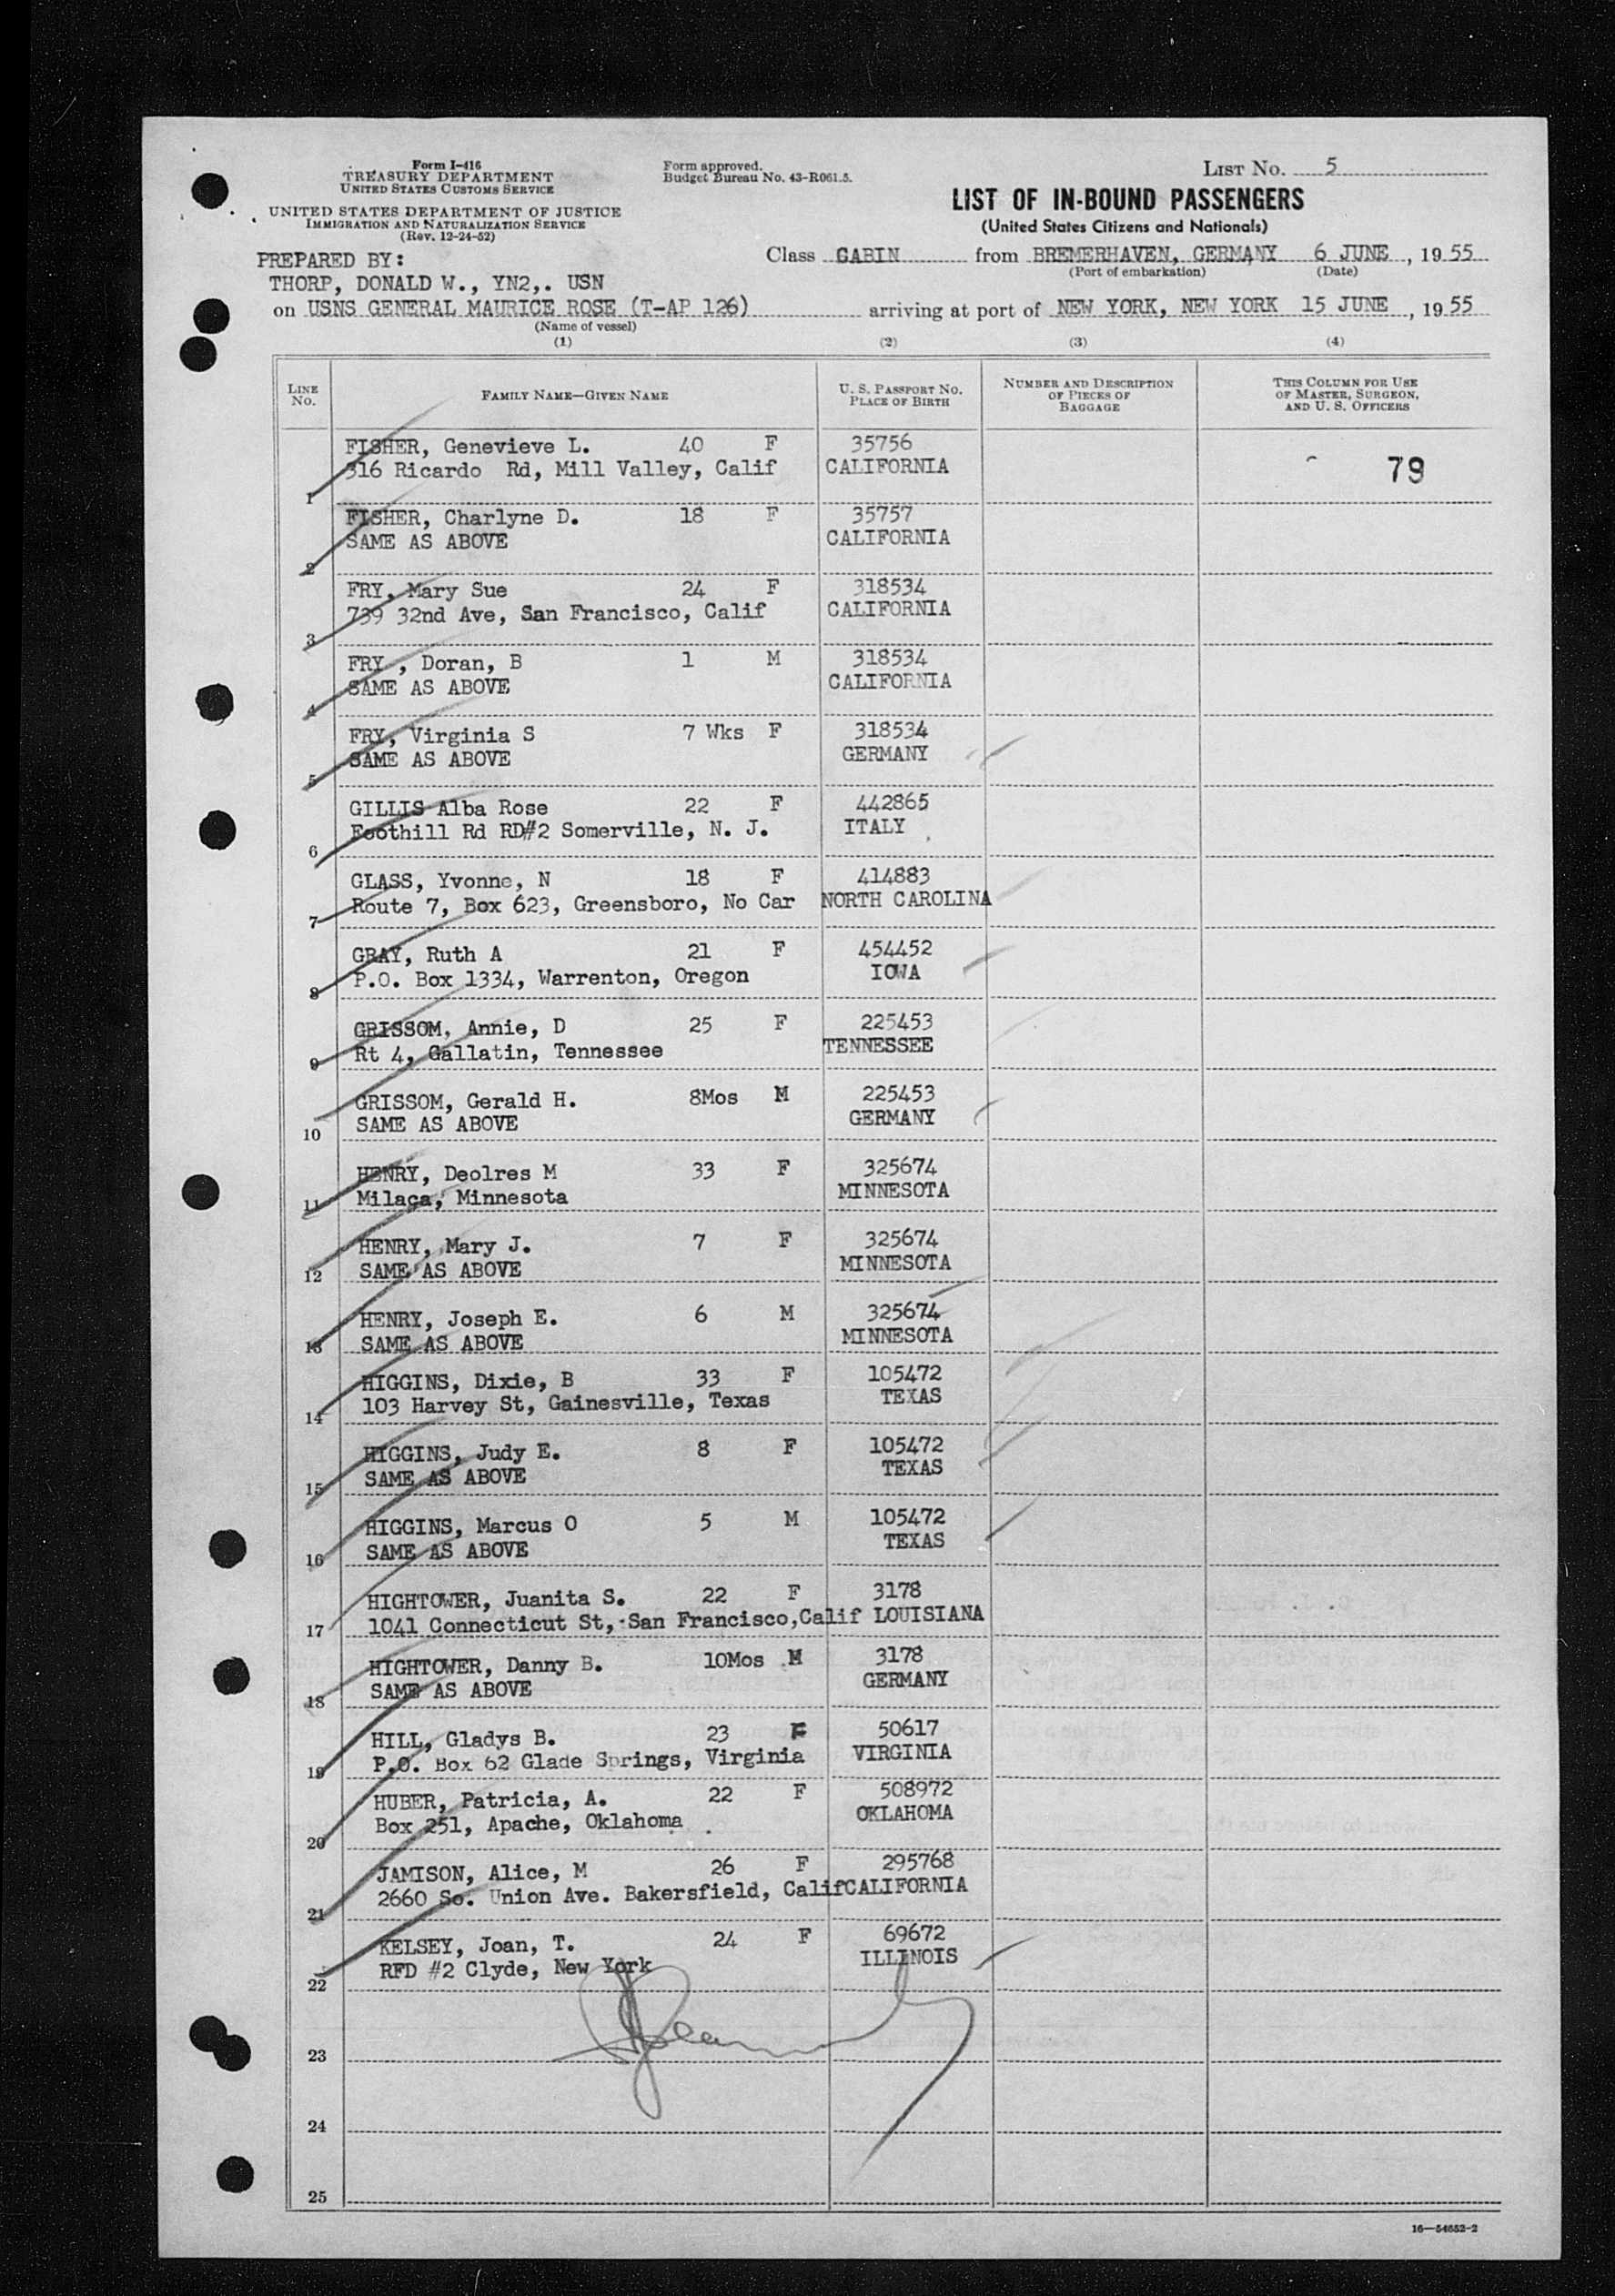 Form I-416
TREASURY DEPARTMENT
UNITED STATES CUSTOMS SERVICE
UNITED STATES DEPARTMENT OF JUSTICE
IMMIGRATION AND NATURALIZATION SERVICE
(Rev. 12-24-52)
Form approved.
Budget Bureau No. 43-R061.5.
LIST No. 5
LIST OF IN-BOUND PASSENGERS
(United States Citizens and Nationals)
PREPARED BY:
THORP, DONALD W., YN2,. USN
Class CABIN from BREMERHAVEN, GERMANY 6 JUNE, 1955
(Port of embarkation) (Date)
on USNS GENERAL MAURICE ROSE (T-AP 126) arriving at port of NEW YORK, NEW YORK 15 JUNE, 1955
(Name of vessel)
(1) (2) (3) (4)
LINE NO. FAMILY NAME—GIVEN NAME U. S. PASSPORT NO. PLACE OF BIRTH NUMBER AND DESCRIPTION OF PIECES OF BAGGAGE THIS COLUMN FOR USE OF MASTER, SURGEON, AND U. S. OFFICERS
FISHER, Genevieve L. 40 F 35756
1 316 Ricardo Rd, Mill Valley, Calif CALIFORNIA 79
FISHER, Charlyne D. 18 F 35757
2 SAME AS ABOVE CALIFORNIA
FRY, Mary Sue 24 F 318534
3 739 32nd Ave, San Francisco, Calif CALIFORNIA
FRY , Doran, B 1 M 318534
4 SAME AS ABOVE CALIFORNIA
FRY, Virginia S 7 Wks F 318534
5 SAME AS ABOVE GERMANY
GILLIS Alba Rose 22 F 442865
6 Foothill Rd RD#2 Somerville, N. J. ITALY
GLASS, Yvonne, N 18 F 414883
7 Route 7, Box 623, Greensboro, No Car NORTH CAROLINA
GRAY, Ruth A 21 F 454452
8 P.O. Box 1334, Warrenton, Oregon IOWA
GRISSOM, Annie, D 25 F 225453
9 Rt 4, Gallatin, Tennessee TENNESSEE
GRISSOM, Gerald H. 8Mos M 225453
10 SAME AS ABOVE GERMANY
HENRY, Deolres M 33 F 325674
11 Milaca, Minnesota MINNESOTA
HENRY, Mary J. 7 F 325674
12 SAME AS ABOVE MINNESOTA
HENRY, Joseph E. 6 M 325674
13 SAME AS ABOVE MINNESOTA
HIGGINS, Dixie, B 33 F 105472
14 103 Harvey St, Gainesville, Texas TEXAS
HIGGINS, Judy E. 8 F 105472
15 SAME AS ABOVE TEXAS
HIGGINS, Marcus O 5 M 105472
16 SAME AS ABOVE TEXAS
HIGHTOWER, Juanita S. 22 F 3178
17 1041 Connecticut St, San Francisco,Calif LOUISIANA
HIGHTOWER, Danny B. 10Mos M 3178
18 SAME AS ABOVE GERMANY
HILL, Gladys B. 23 F 50617
19 P.O. Box 62 Glade Springs, Virginia VIRGINIA
HUBER, Patricia, A. 22 F 508972
20 Box 251, Apache, Oklahoma OKLAHOMA
JAMISON, Alice, M 26 F 295768
21 2660 So. Union Ave. Bakersfield, Calif CALIFORNIA
KELSEY, Joan, T. 24 F 69672
22 RFD #2 Clyde, New York ILLINOIS
23
24
25
16—54652-2